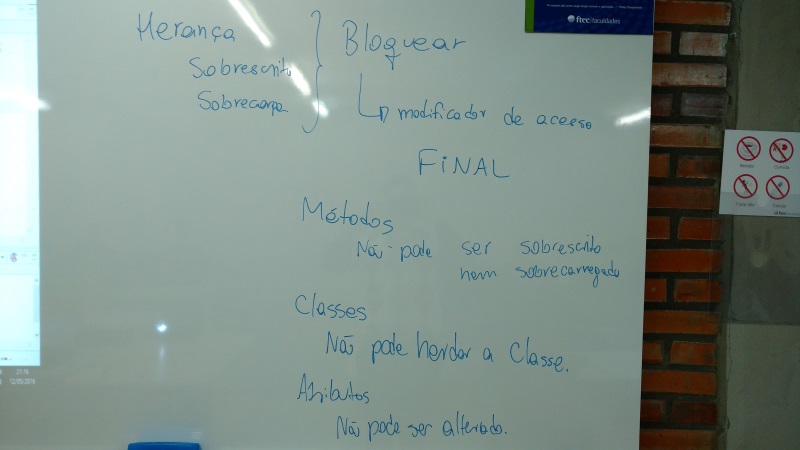 Herança
Sobrescrito
Sobrecarga
Bloquear
modificador de acesso
FINAL
Métodos
Não pode ser sobrescrito
nem sobrecarregado
Classes
Não pode herdar a Classe.
Atributos
Não pode ser alterado.
ftec faculdades
21:16
12/05/2016